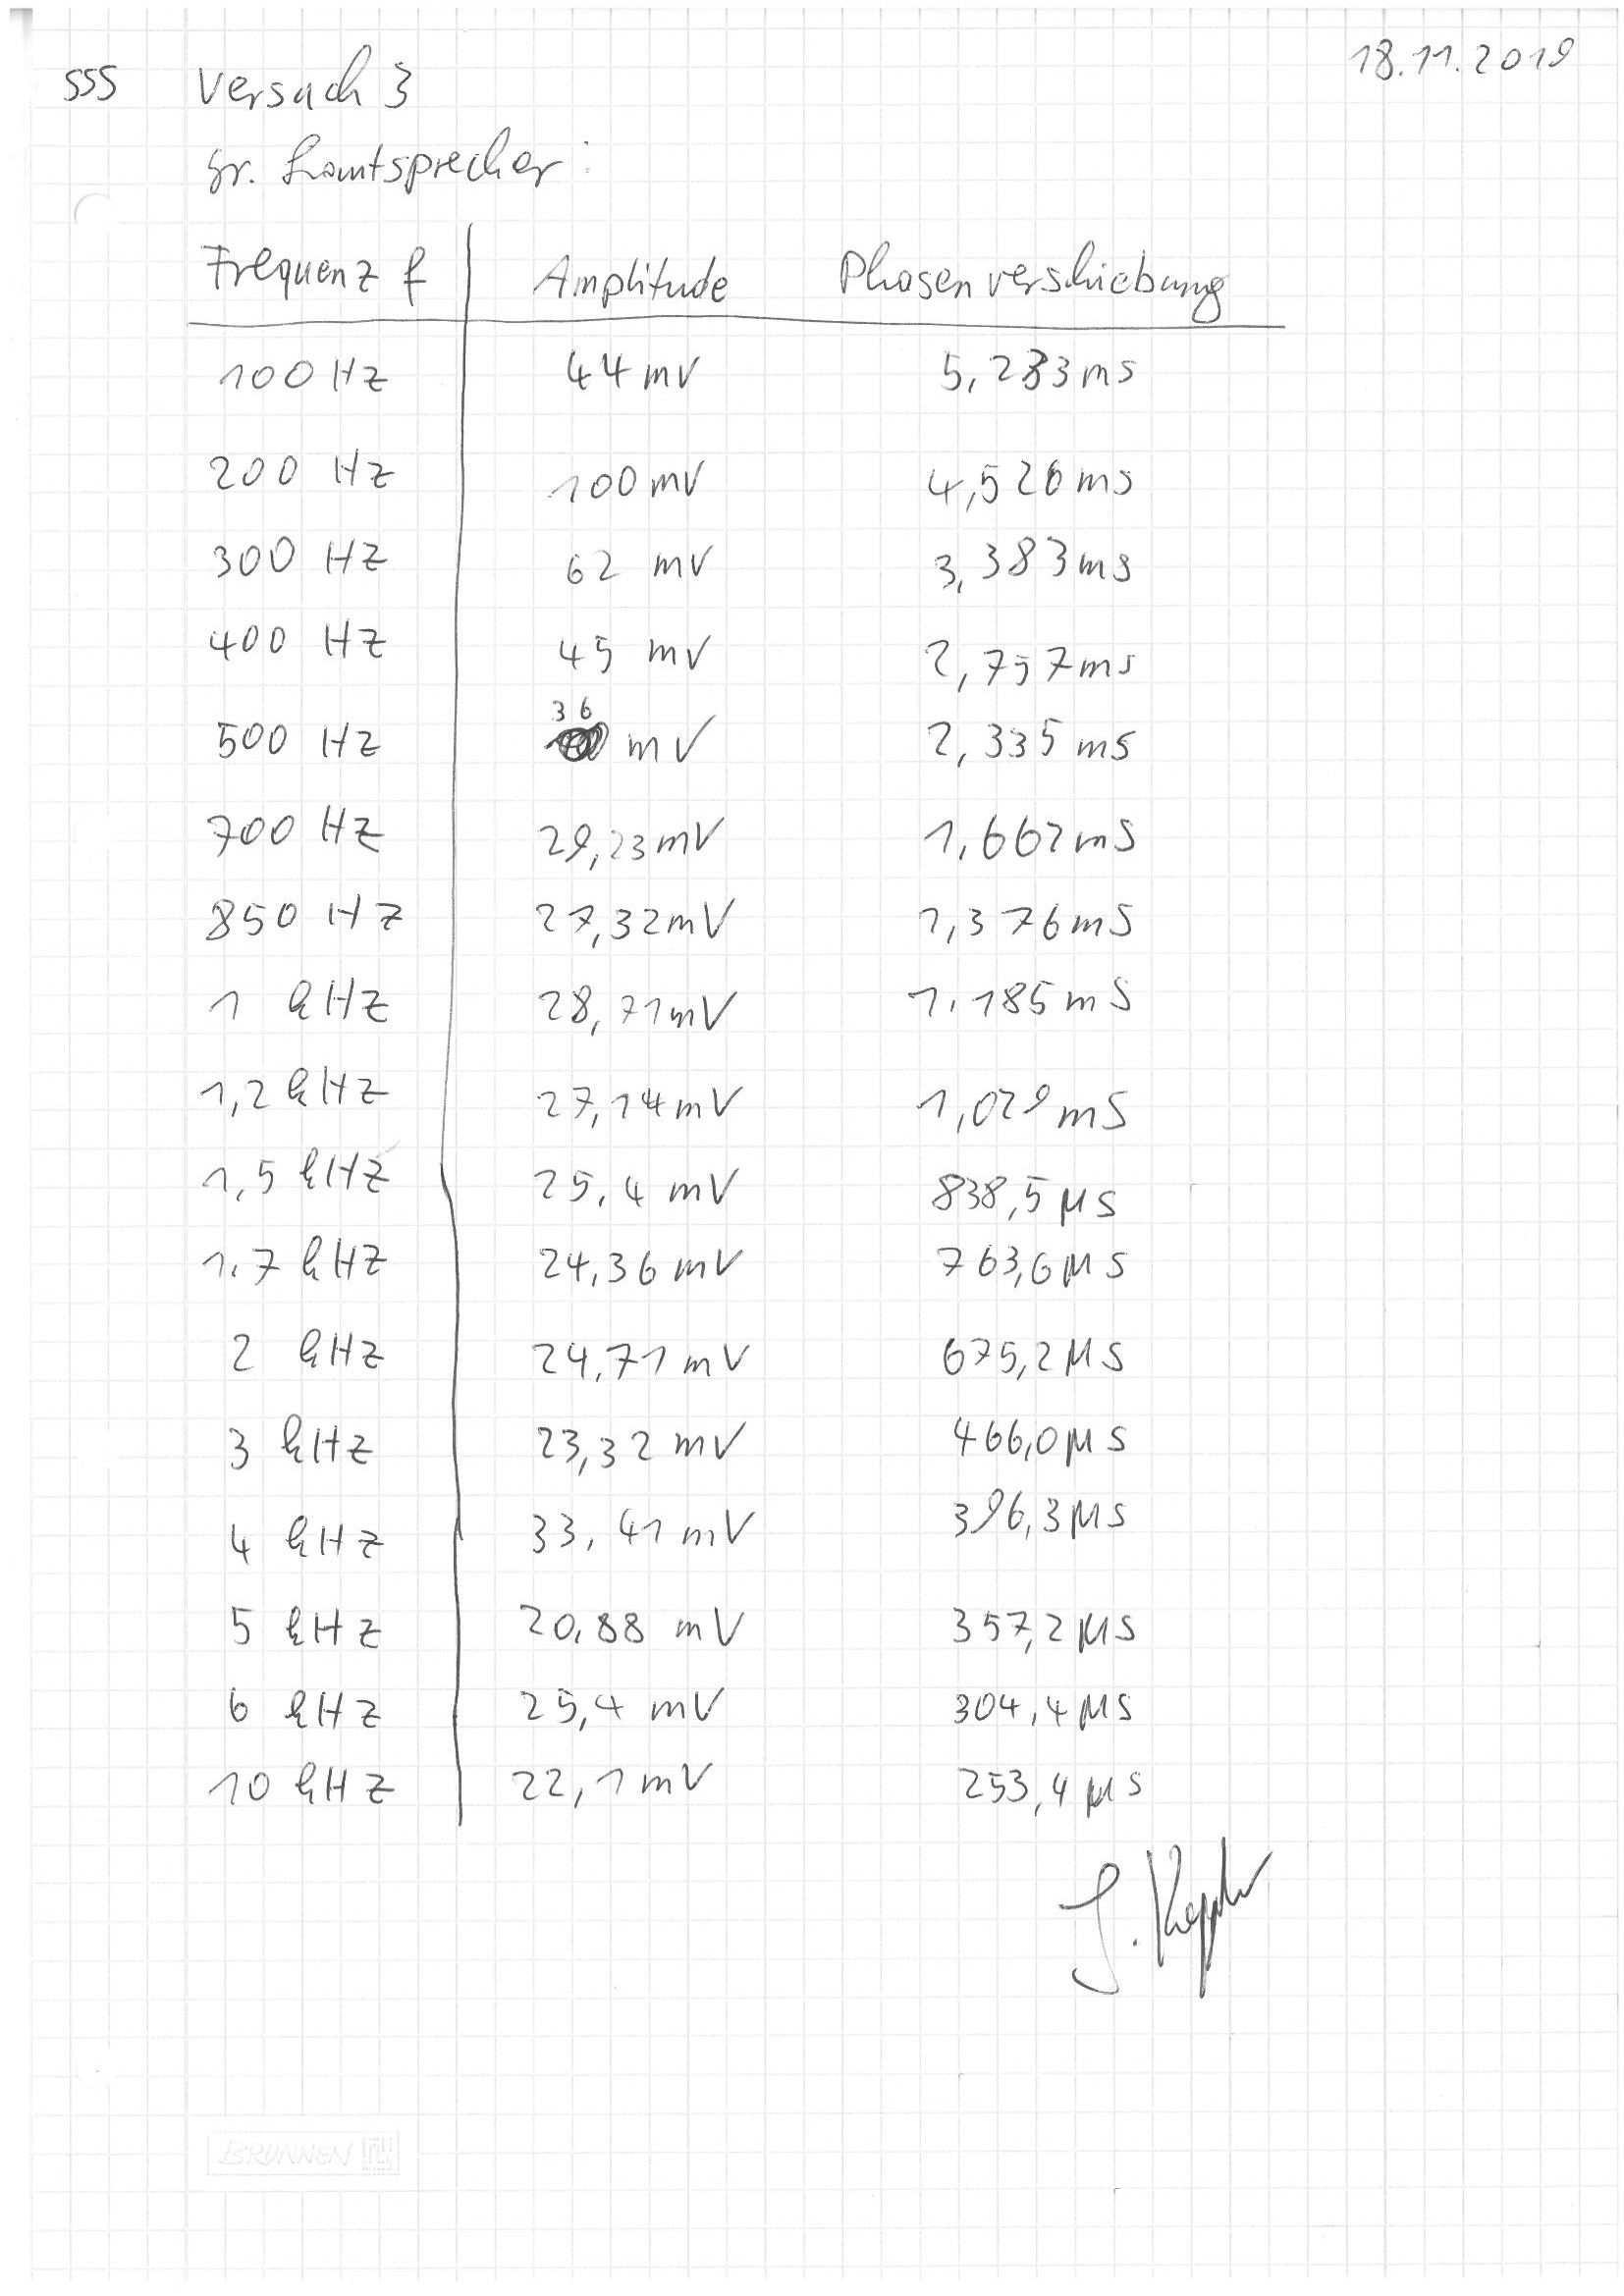 18.11.2019
SSS Versuch 3
Gr. Lautsprecher:
Frequenz f Amplitude Phasenverschiebung
100 Hz 44 mV 5,233 ms
200 Hz 100 mV 4,526 ms
300 Hz 62 mV 3,383 ms
400 Hz 45 mV 2,757 ms
500 Hz 36 mV 2,335 ms
700 Hz 29,23 mV 1,662 mS
850 Hz 27,32 mV 1,376 mS
1 kHz 28,71 mV 1.185 mS
1,2 kHz 27,14 mV 1,029 mS
1,5 kHz 25,4 mV 838,5 µS
1.7 kHz 24,36 mV 763,6 µS
2 kHz 24,71 mV 675,2 µS
3 kHz 23,32 mV 466,0 µS
4 kHz 33,41 mV 396,3 µS
5 kHz 20,88 mV 357,2 µS
6 kHz 25,4 mV 304,4 µS
10 kHz 22,1 mV 253,4 µS
BRUNNEN